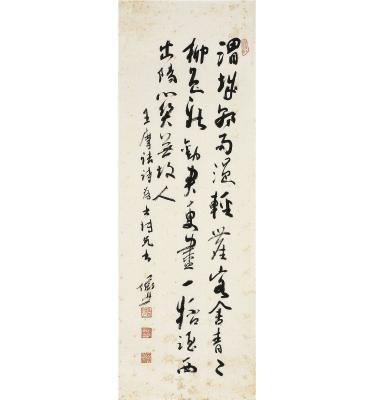 渭城朝雨浥輕塵客舍青〻
柳色新勸君更盡一杯酒西
出陽關無故人
王摩詰詩為士 兄